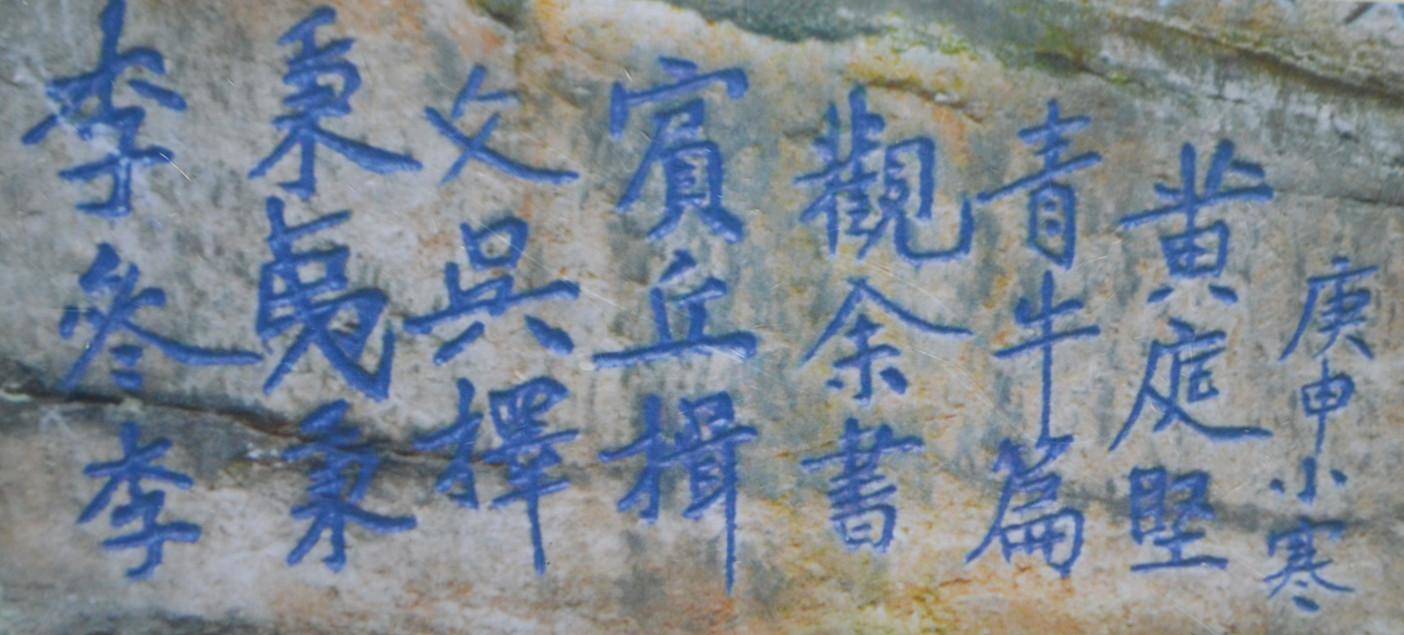 李參李
秉夷秉
文吳擇
賓丘揖
觀余書
青牛篇
黃庭堅
庚申小寒